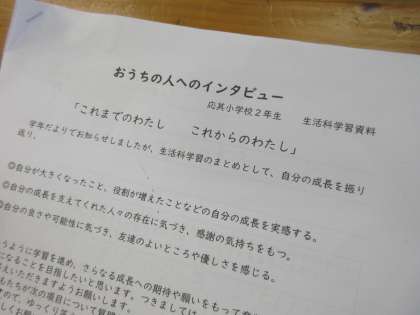 おうちの人へのインタビュー
応其小学校２年生　生活科学習資料
「これまでのわたし　これからのわたし」
学年だよりでお知らせしましたが、生活科学習のまとめとして、自分の成長を振り
返り、
◎自分が大きくなったこと、役割が増えたことなどの自分の成長を実感する。
◎自分の成長を支えてくれた人々の存在に気づき、感謝の気持ちをもつ。
◎自分の良さや可能性に気づき、友達のよいところや優しさを感じる。
ように学習を進め、さらなる成長への期待や願いをもって
になることを目指したいと思います。つきましては、
えいただきますようお願いします。
もたちが次の項目について質問
ので、ゆっくり